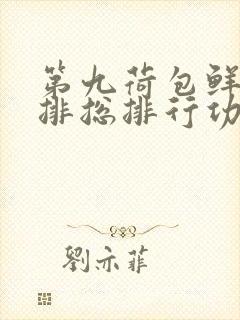 第九荷包鲜
排总排行功
劉亦菲